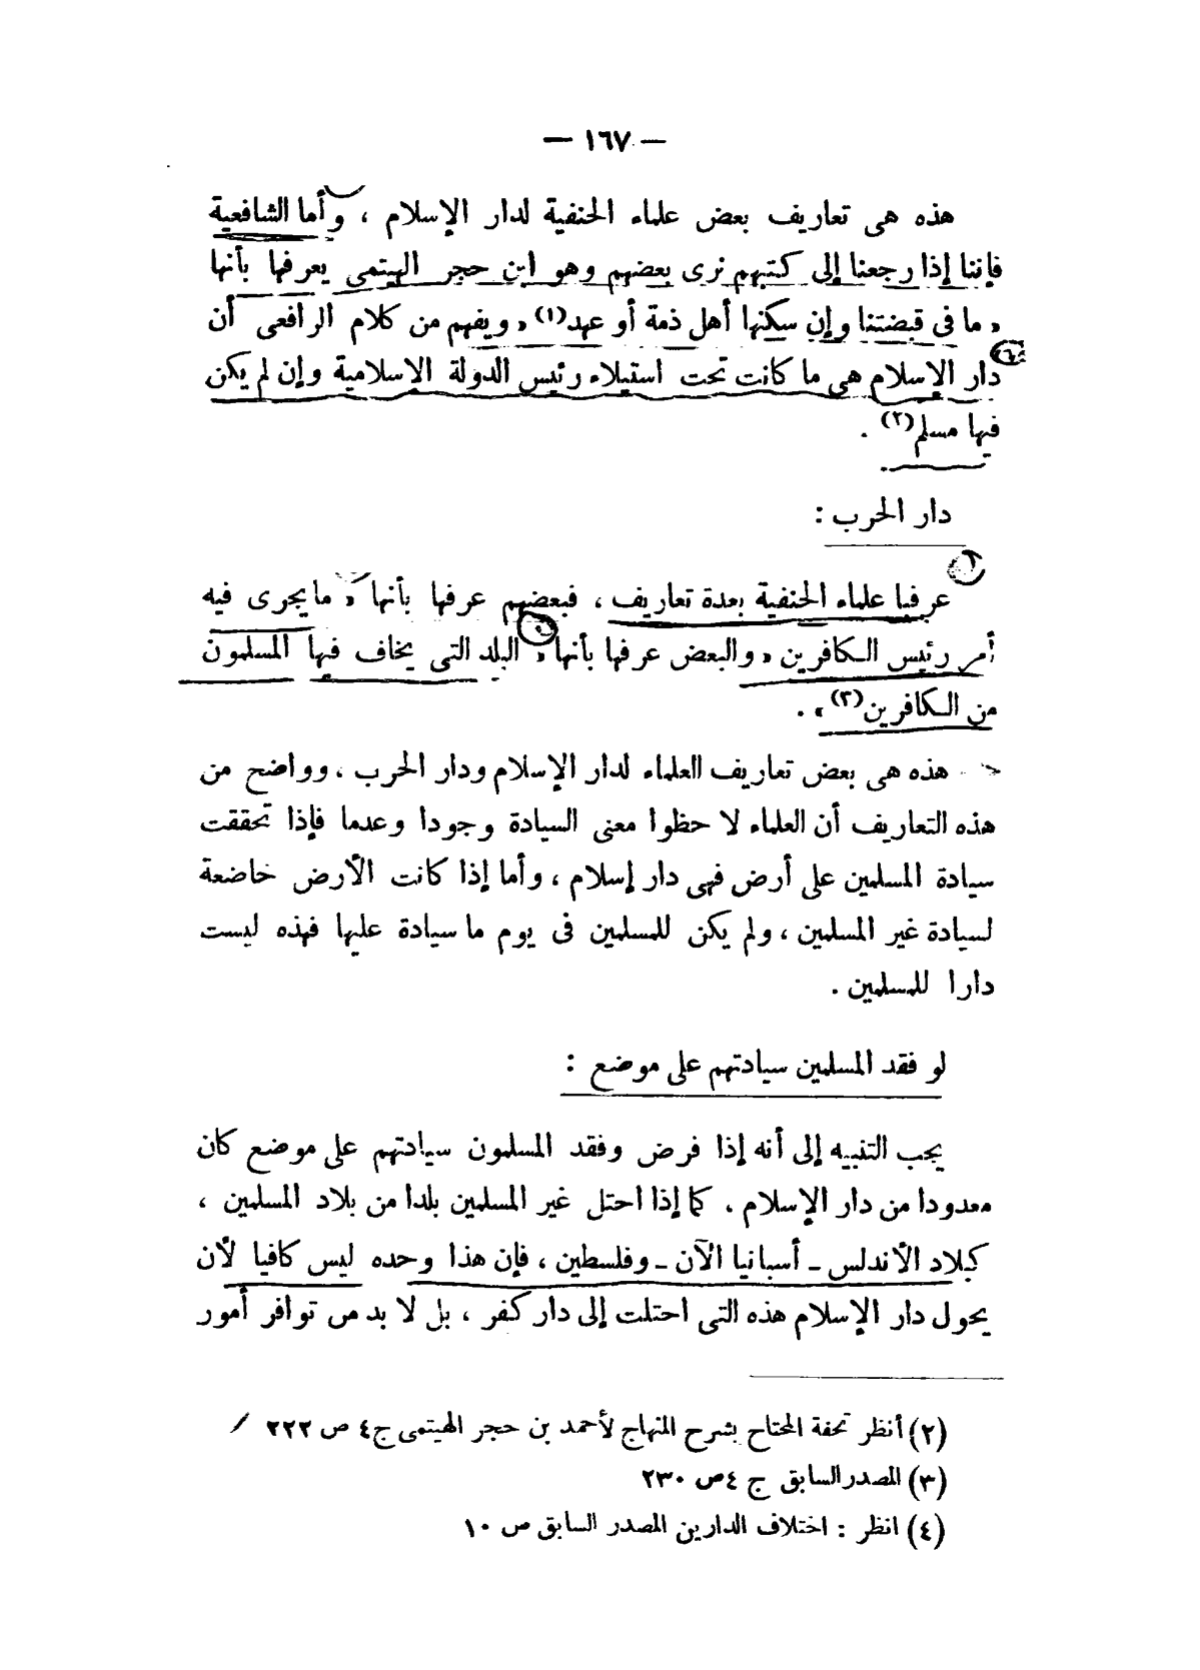 — ١٦٧ —
هذه هى تعاريف بعض علماء الحنفية لدار الإسلام ، وأما الشافعية
فإننا إذا رجعنا إلى كتبهم نرى بعضهم وهو ابن حجر الهيتمى يعرفها بأنها
« ما فى قبضتنا وإن سكنها أهل ذمة أو عهد(١) » ويفهم من كلام الرافعى أن
دار الإسلام هى ما كانت تحت استيلاء رئيس الدولة الإسلامية وإن لم يكن
فيها مسلم(٢) .
دار الحرب :
عرفها علماء الحنفية بعدة تعاريف ، فبعضهم عرفها بأنها « ما يجرى فيه
أمر رئيس الكافرين » والبعض عرفها بأنها « البلد التى يخاف فيها المسلمون
من الكافرين(٣) » .
هذه هى بعض تعاريف العلماء لدار الإسلام ودار الحرب ، وواضح من
هذه التعاريف أن العلماء لا حظوا معنى السيادة وجودا وعدما فإذا تحققت
سيادة المسلمين على أرض فهى دار إسلام ، وأما إذا كانت الأرض خاضعة
لسيادة غير المسلمين ، ولم يكن للمسلمين فى يوم ما سيادة عليها فهذه ليست
دارا للمسلمين .
لو فقد المسلمين سيادتهم على موضع :
يجب التنبيه إلى أنه إذا فرض وفقد المسلمون سيادتهم على موضع كان
معدودا من دار الإسلام ، كما إذا احتل غير المسلمين بلدا من بلاد المسلمين ،
كبلاد الأندلس - أسبانيا الآن - وفلسطين ، فإن هذا وحده ليس كافيا لأن
يحول دار الإسلام هذه التى احتلت إلى دار كفر ، بل لا بد من توافر أمور
(٢) أنظر تحفة المحتاج بشرح المنهاج لأحمد بن حجر الهيتمى ج٤ ص ٢٢٢
(٣) المصدر السابق ج ٤ ص ٢٣٠
(٤) انظر : اختلاف الدارين المصدر السابق ص ١٠